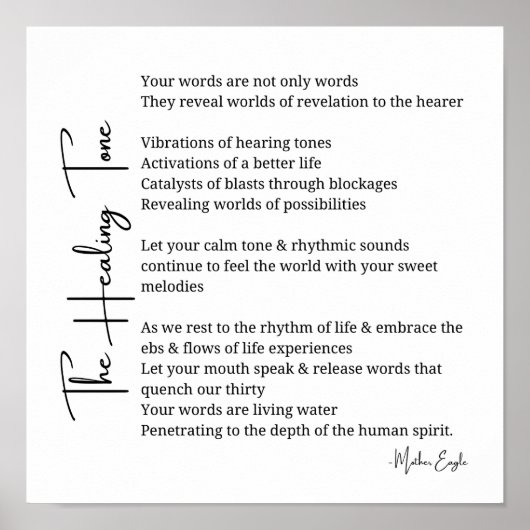 The Healing Tone
Your words are not only words
They reveal worlds of revelation to the hearer
Vibrations of hearing tones
Activations of a better life
Catalysts of blasts through blockages
Revealing worlds of possibilities
Let your calm tone & rhythmic sounds
continue to feel the world with your sweet
melodies
As we rest to the rhythm of life & embrace the
ebs & flows of life experiences
Let your mouth speak & release words that
quench our thirty
Your words are living water
Penetrating to the depth of the human spirit.
-Mother Eagle